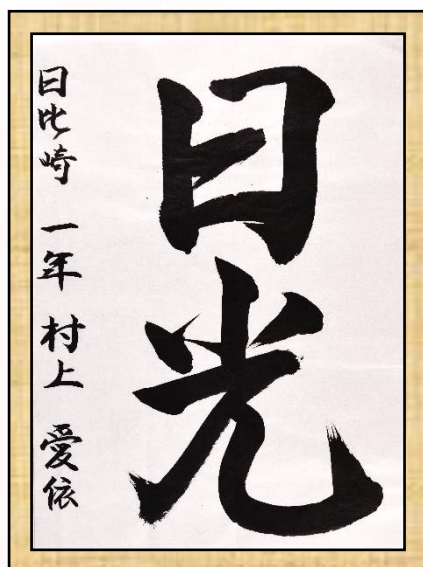 日光
日比崎 一年 村上 愛依